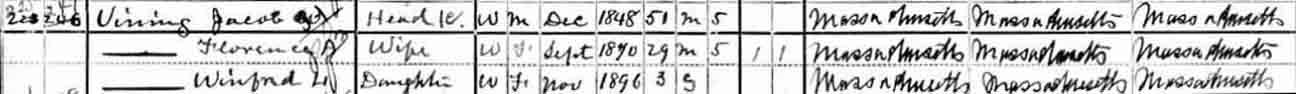 246 Vining Jacob Head W M Dec 1848 51 M 5 Massachusetts Massachusetts Massachusetts
—— Florence A Wife W F Sept 1870 29 M 5 1 1 Massachusetts Massachusetts Massachusetts
—— Winifred Daughter W F Nov 1896 3 S Massachusetts Massachusetts Massachusetts